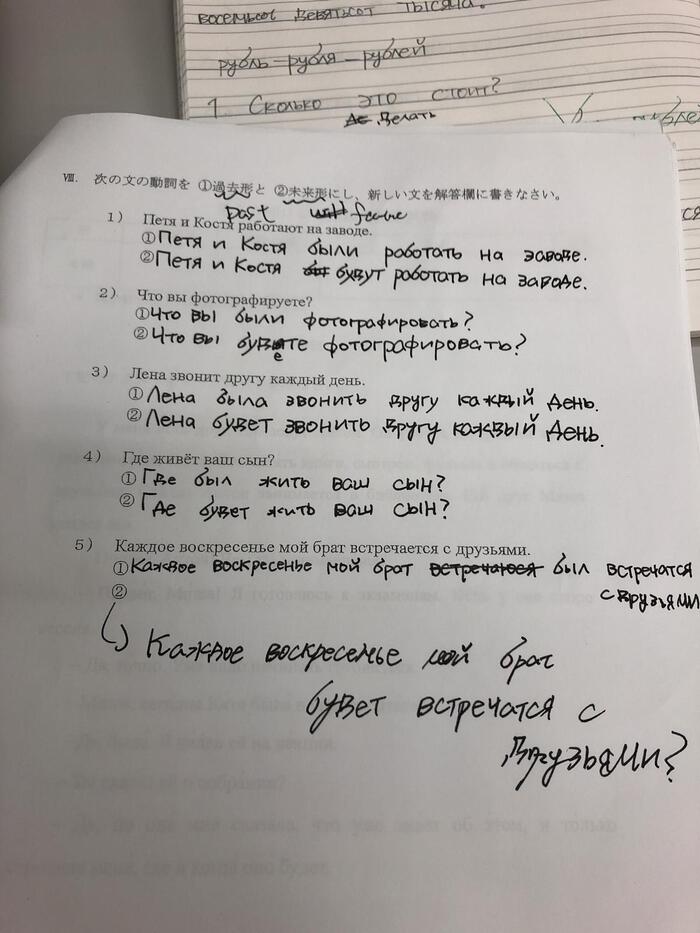 восемьсот девятьсот тысяча.
рубль – рубля – рублей
1. Сколько это стоит?
делать
Ⅷ. 次の文の動詞を ①過去形と ②未来形にし、新しい文を解答欄に書きなさい。
past
1) Петя и Костя работают на заводе.
①Петя и Костя были роботать на заводе.
②Петя и Костя будут роботать на заводе.
2) Что вы фотографируете?
①Что вы были фотографировать?
②Что вы будете фотографировать?
3) Лена звонит другу каждый день.
①Лена была звонить другу каждый день.
②Лена будет звонить другу каждый день.
4) Где живёт ваш сын?
①Где был жить ваш сын?
②Где будет жить ваш сын?
5) Каждое воскресенье мой брат встречается с друзьями.
①Каждое воскресенье мой брат встречаюся был встречатся
с друзьями
②
Каждое воскресенье мой брат
будет встречатся с
друзьями?